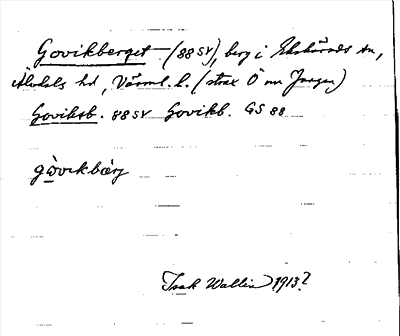 Govikberget (88 SV), berg i Ekshärads sn,
Älvdals hd, Värml. l. (strax Ö om Jangen)
Goviksb. 88 SV Govikb. GS 88
gòvikbærj
Isak Wallin 1913?